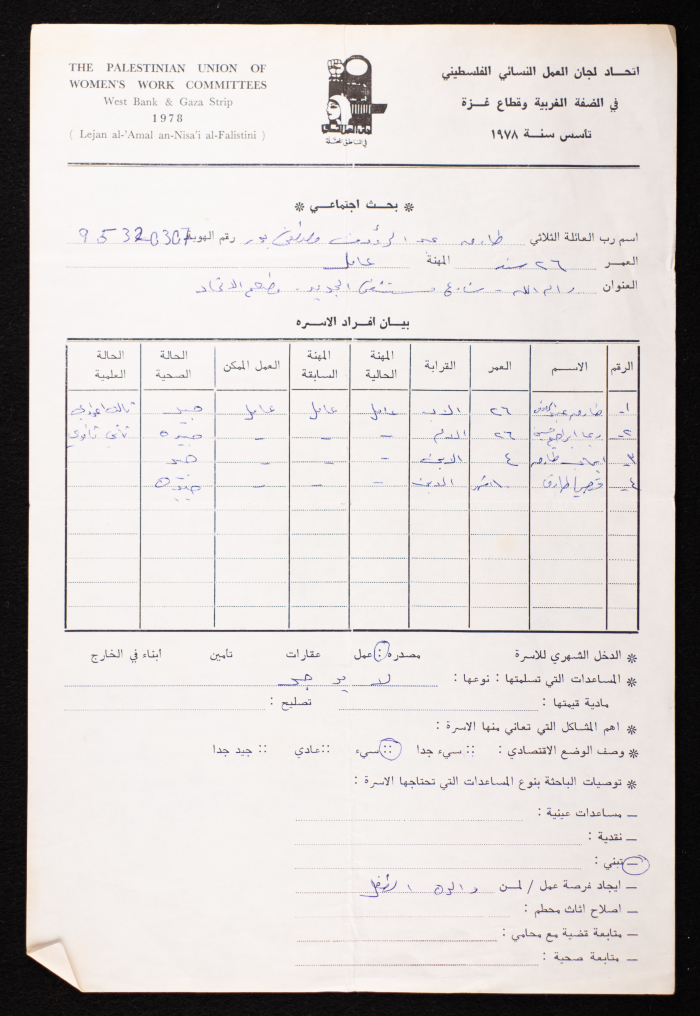 THE PALESTINIAN UNION OF
WOMEN'S WORK COMMITTEES
West Bank & Gaza Strip
1978
( Lejan al-'Amal an-Nisa'i al-Falistini )
اتحاد لجان العمل النسائي الفلسطيني
في الضفة الغربية وقطاع غزة
تأسس سنة ١٩٧٨
في المناطق المحتلة
* بحث اجتماعي *
اسم رب العائلة الثلاثي طارق عبد الرؤوف مصطفى رقم الهوية
العمر ٢٦ سنة المهنة عامل
العنوان رام الله - شارع مستشفى الجديد - مطعم الاتحاد
بيان افراد الاسره
الرقم الاسم العمر القرابة المهنة الحالية المهنة السابقة العمل الممكن الحالة الصحية الحالة العلمية
١- طارق ٢٦ الاب عامل عامل عامل جيد ثالث اعدادي
٢- ريما ابراهيم ٢٦ الام - - - جيده ثاني ثانوي
٣- طارق ٤ - - - جيد
٤- طارق ١٠ اشهر - - - جيده
* الدخل الشهري للاسرة مصدره : عمل عقارات تامين ابناء في الخارج
* المساعدات التي تسلمتها : نوعها : لا يوجد
مادية قيمتها : تصليح :
* اهم المشاكل التي تعاني منها الاسرة :
* وصف الوضع الاقتصادي : :: سيء جدا :: سيء :: عادي :: جيد جدا
* توصيات الباحثة بنوع المساعدات التي تحتاجها الاسرة :
– مساعدات عينية :
– نقدية :
– تبني :
– ايجاد فرصة عمل / لمن والدة الطفل
– اصلاح اثاث محطم :
– متابعة قضية مع محامي :
– متابعة صحية :